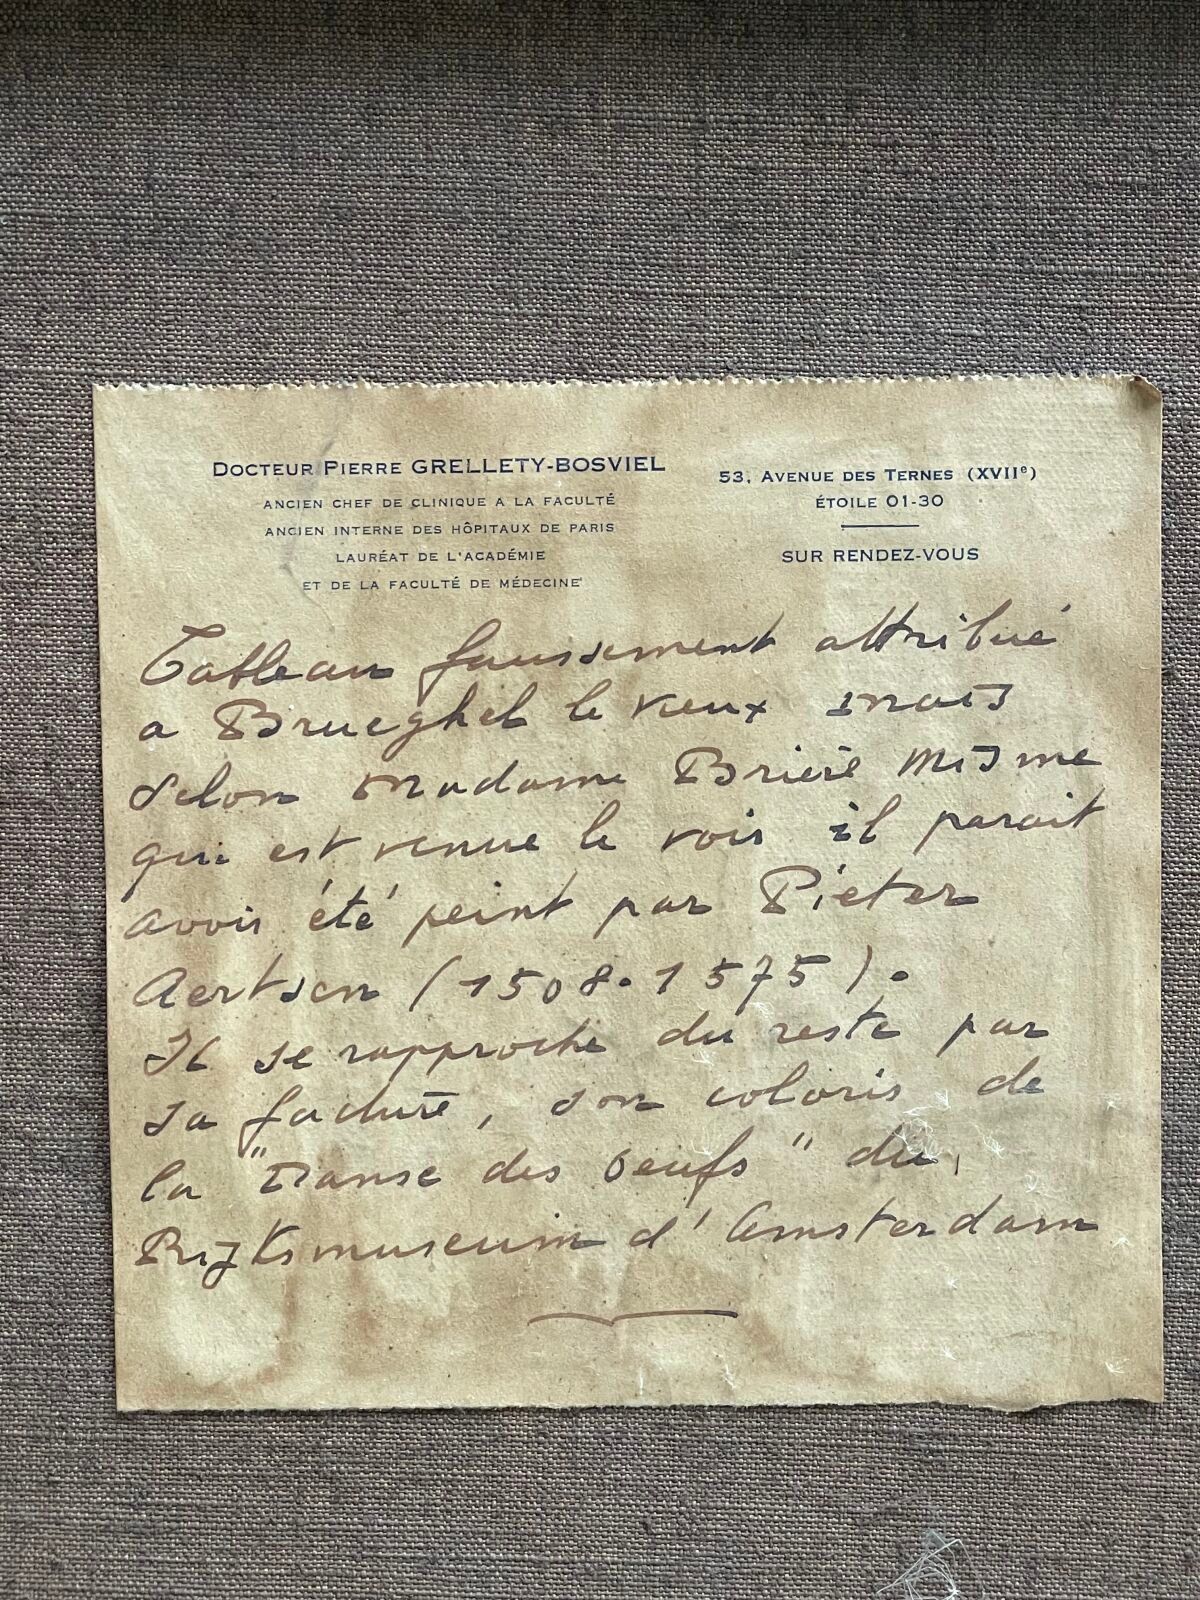 DOCTEUR PIERRE GRELLETY-BOSVIEL
ANCIEN CHEF DE CLINIQUE A LA FACULTÉ
ANCIEN INTERNE DES HÔPITAUX DE PARIS
LAURÉAT DE L'ACADÉMIE
ET DE LA FACULTÉ DE MÉDECINE
53, AVENUE DES TERNES (XVIIe)
ÉTOILE 01-30
SUR RENDEZ-VOUS
Tableau faussement attribué
a Brueghel le vieux mais
selon Madame Brière Misme
qui est venue le voir il parait
avoir été peint par Pieter
Aertsen (1508-1575).
Il se rapproche du reste par
sa facture, son coloris de
la "Danse des oeufs" du
Rijksmuseum d'Amsterdam